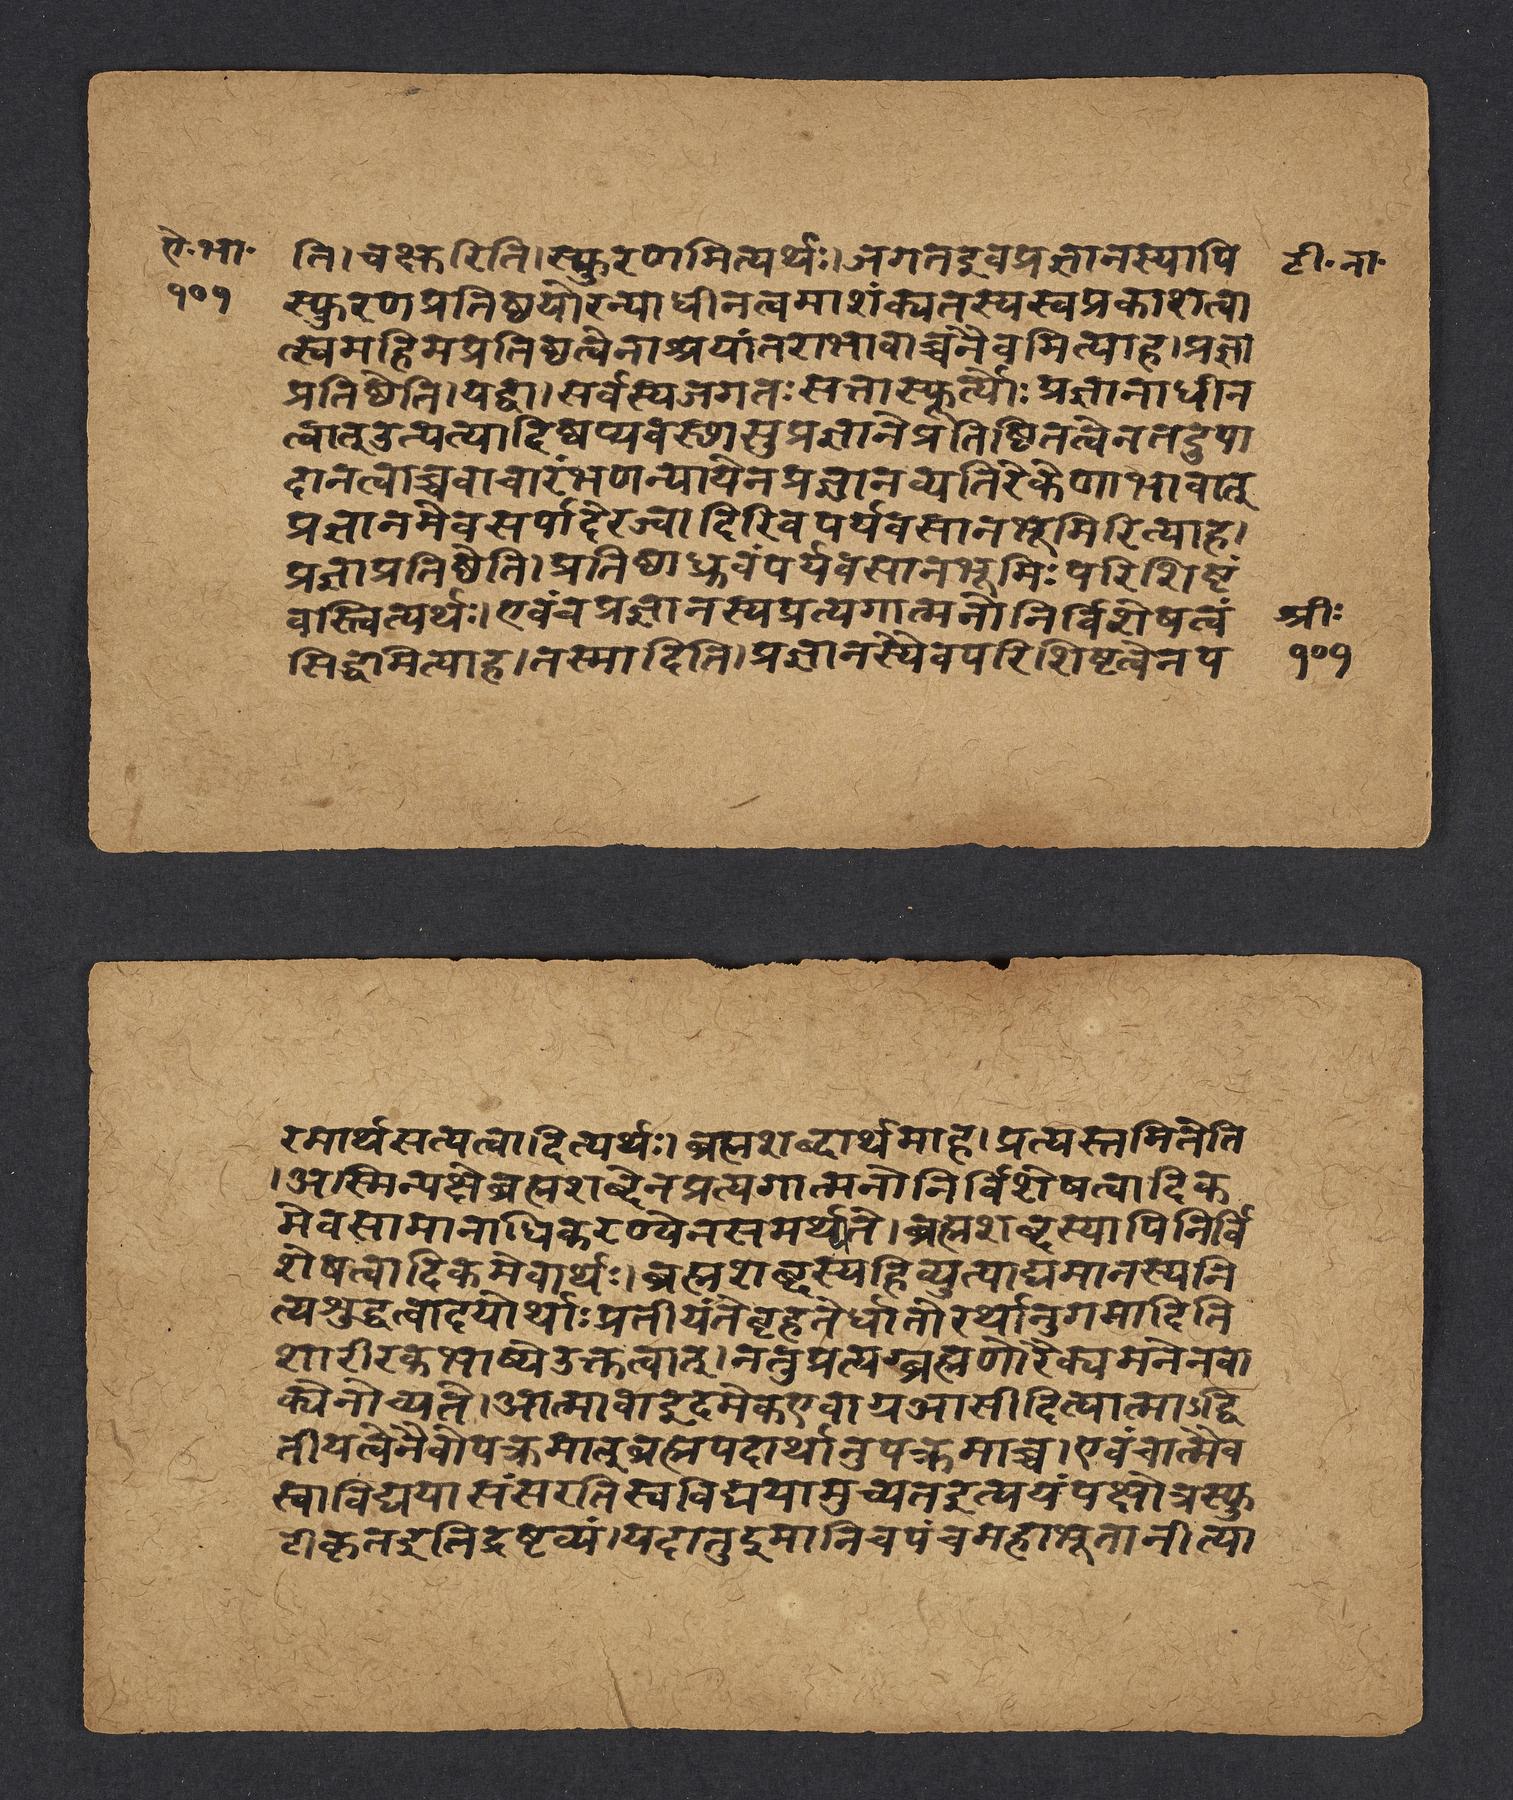 ऐ·भा·
१०१
ति।चक्षुरिति।स्फुरणमित्यर्थः।जगतइवप्रज्ञानस्यापि
टी·ना·
स्फुरणप्रतिष्ठयोरन्याधीनत्वमाशंक्यतस्यस्वप्रकाशत्वा
त्स्वमहिमप्रतिष्ठत्वेनाश्रयांतराभावाच्चनैवमित्याह।प्रज्ञा
प्रतिष्ठेति।यद्वा।सर्वस्यजगतःसत्तास्फूर्त्योःप्रज्ञानाधीन
त्वात्उत्पत्यादिष्वप्यवस्थासुप्रज्ञानेप्रतिष्ठितत्वेनतदुपा
दानत्वाच्चवाचारंभणन्यायेनप्रज्ञानव्यतिरेकेणाभावात्
प्रज्ञानमेवसर्पादेरज्वादिरिवपर्यवसानभूमिरित्याह।
प्रज्ञाप्रतिष्ठेति।प्रतिष्ठाध्रुवंपर्यवसानभूमिःपरिशिष्टं
वस्त्वित्यर्थः।एवंचप्रज्ञानस्यप्रत्यगात्मनोनिर्विशेषत्वं
श्रीः
सिद्धमित्याह।तस्मादिति।प्रज्ञानस्यैवपरिशिष्टत्वेनप
१०१
रमार्थसत्यत्वादित्यर्थः।ब्रह्मशब्दार्थमाह।प्रत्यस्तमितेति
।अस्मिन्पक्षेब्रह्मशब्देनप्रत्यगात्मनोनिर्विशेषत्वादिक
मेवसामानाधिकरण्येनसमर्थ्यते।ब्रह्मशब्दस्यापिनिर्वि
शेषत्वादिकमेवार्थः।ब्रह्मशब्दस्यहिव्युत्पाद्यमानस्यनि
त्यशुद्धत्वादयोर्थाःप्रतीयंतेबृहतेर्धातोरर्थानुगमादिति
शारीरकभाष्येउक्तत्वात्।ननुप्रत्यग्ब्रह्मणोरैक्यमनेनवा
क्येनोच्यते।आत्मावाइदमेकएवाग्रआसीदित्यात्माऽद्वि
तीयत्वेनैवोपक्रमात्ब्रह्मपदार्थानुपक्रमाच्च।एवंचात्मैव
स्वाविद्ययासंसरतिस्वविद्ययामुच्यतइत्ययंपक्षोत्रस्फु
टीकृतइतिद्रष्टव्यं।यदातुइमानिचपंचमहाभूतानीत्या